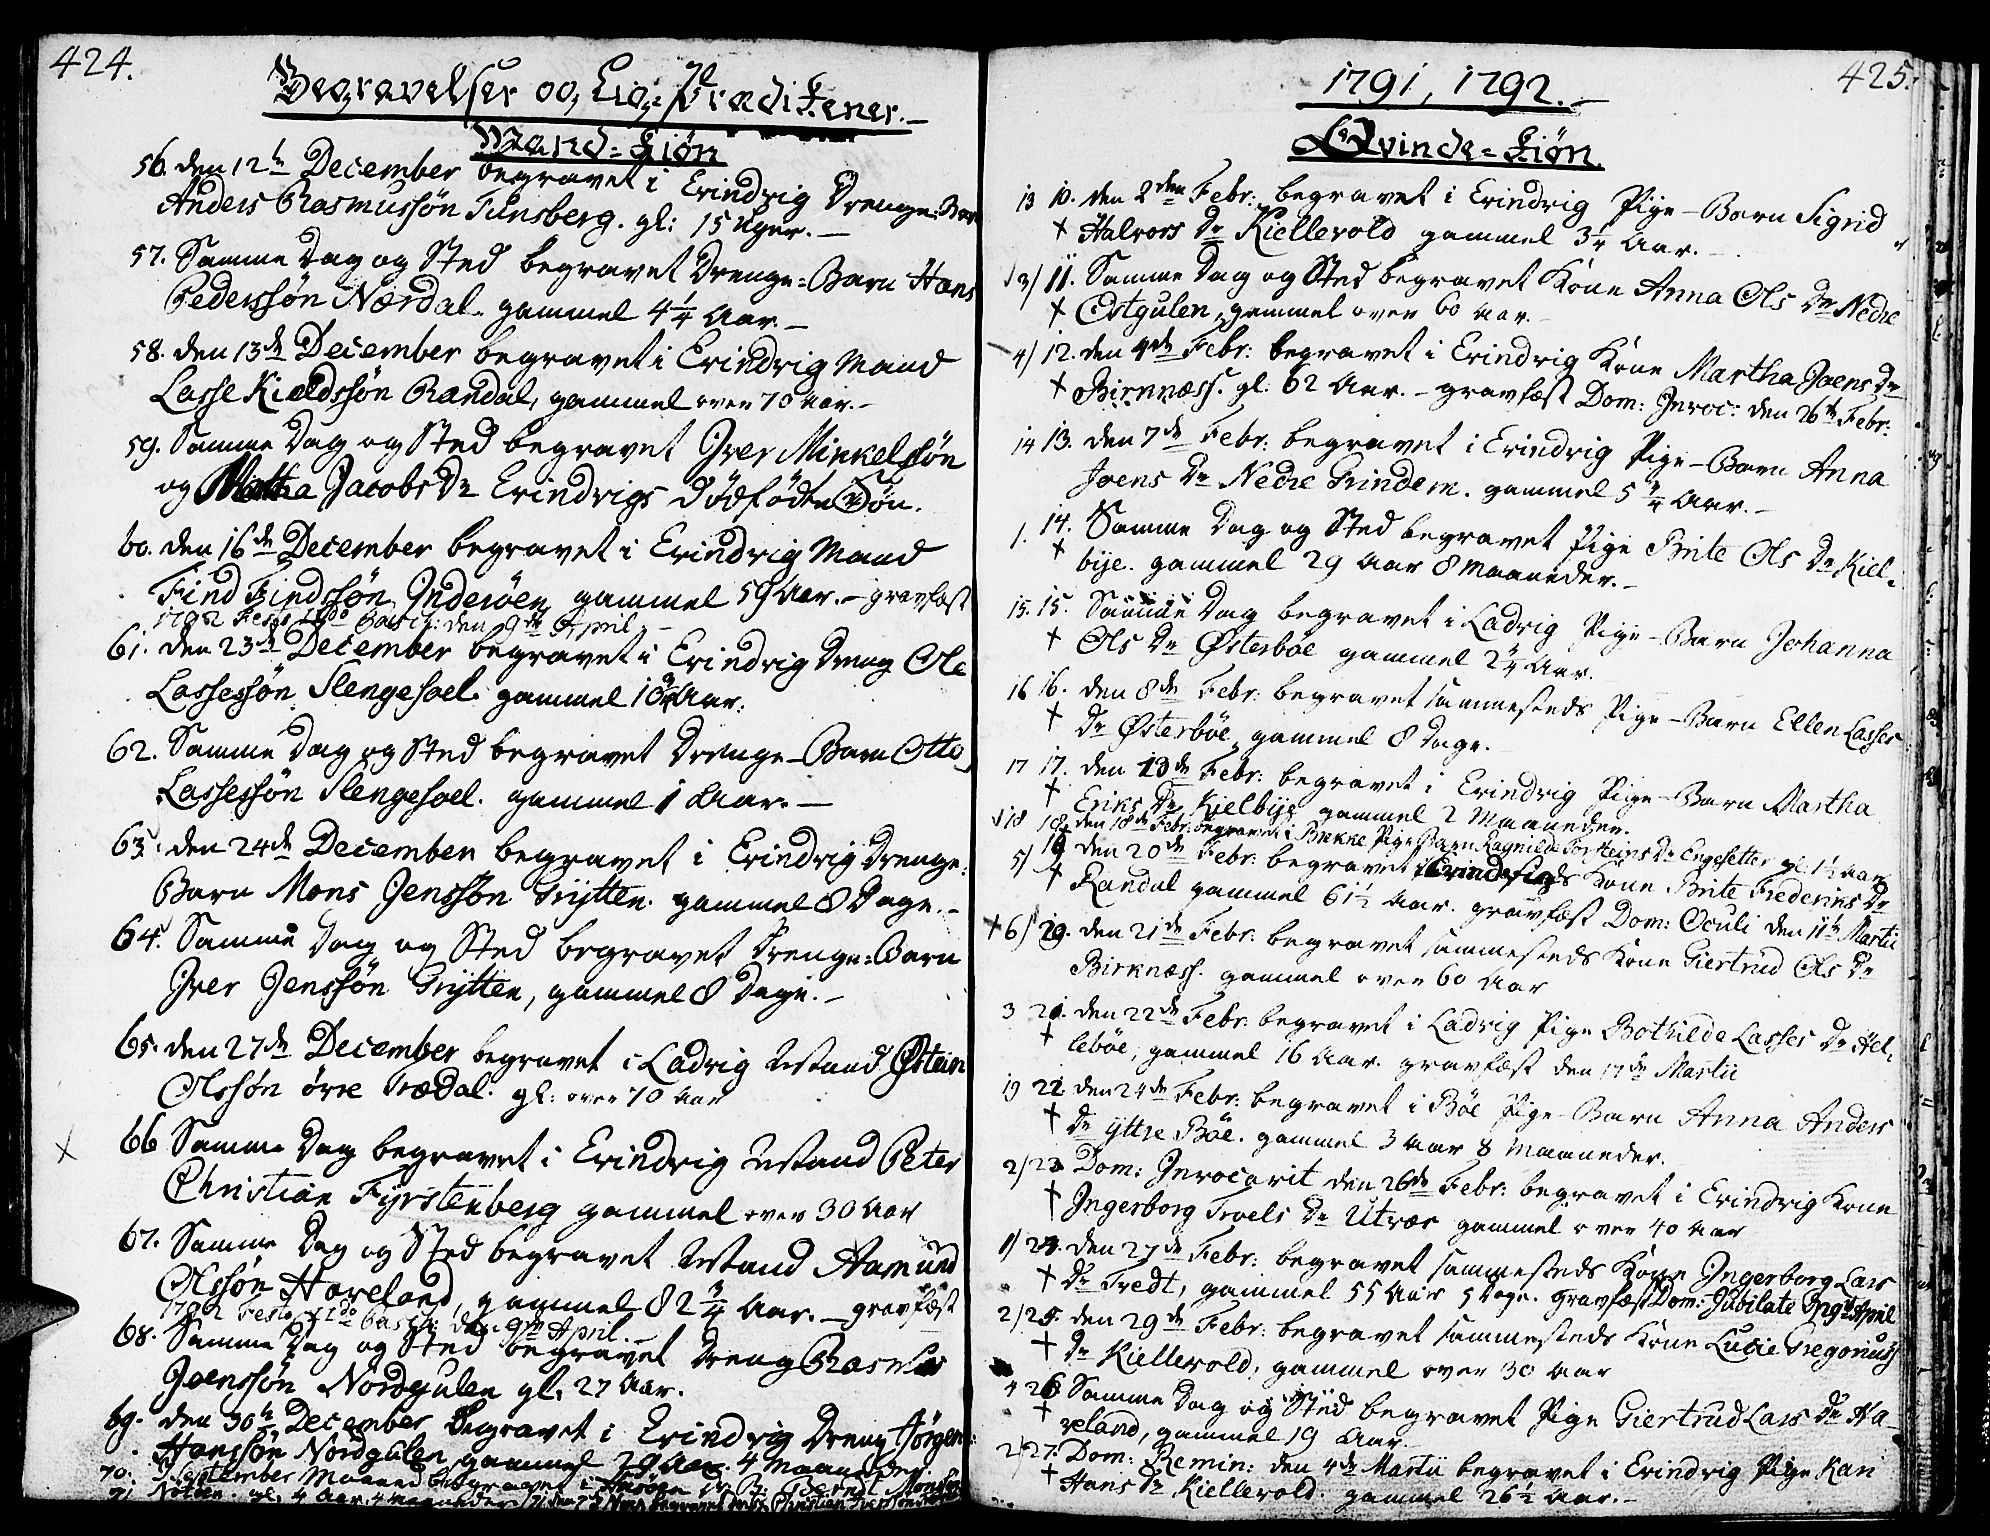 424.
Begravelser og Liig-Prædikener.
Mand-Kiøn
56. den 12te December begravet i Erindvig Drenge-Barn
Anders Rasmussøn Tunsberg. gl: 15 Uger.
57. Samme Dag og Sted begravet Drenge-Barn Hans
Pederssøn Nordal. gammel 4¼ Aar.
58. den 13de December begravet i Erindvig Mand
Lasse Kieldssøn Randal, gammel over 70 Aar.
59. Samme Dag og Sted begravet Iver Minkelssøn
og Martha Jacobs Dr Erindvigs Dødfødte Søn.
60. den 16de December begravet i Erindvig Mand
Find Findssøn Inderøen, gammel 59 Aar. gravfæst
1792 Festo IIdo Pasch: den 9de April.
61. den 23de December begravet i Erindvig Dreng Ole
Lassessøn Slengesoel. gammel 10¾ Aar.
62. Samme Dag og Sted begravet Drenge-Barn Otto
Lassessøn Slengesoel. gammel 1 Aar.
63. den 24de December begravet i Erindvig Drenge-
Barn Mons Jenssøn Grytten. gammel 8 Dage.
64. Samme Dag og Sted begravet Drenge-Barn
Iver Jenssøn Grytten, gammel 8 Dage.
65. den 27de December begravet i Ladvig Mand Østein
Olssøn øvre Trædal. gl: over 70 Aar
66 Samme Dag begravet i Erindvig Mand Peter
Christian Fyrstenberg gammel over 30 Aar
67. Samme Dag og Sted begravet Mand Aamund
Olssøn Hoveland, gammel 82¾ Aar. gravfæst
1792 Festo IIdo Pasch: den 9de April.
68. Samme Dag og Sted begravet Dreng Rasmus
Joenssøn Nordgulen gl: 27 Aar.
69. den 30te December begravet i Erindvig Dreng Jørgen
Hanssøn Nordgulen, gammel 20 Aar 4 Maaneder
70. I September Maaned begravet i
71
425.
1791, 1792.
Qvinde-Kiøn.
13 10. den 2den Febr: begravet i Erindvig Pige-Barn Sigrid
+ Halvors Dr Kiellevold gammel 3¼ Aar.
3/ 11. Samme Dag og Sted begravet Kone Anna Ols Dr Nedre
+ Østgulen, gammel over 60 Aar.
4/ 12. den 4de Febr: begravet i Erindvig Kone Martha Joens Dr
+ Birknæss. gl: 62 Aar. - gravfæst Dom: Invoc: den 26de Febr:
14 13. den 7de Febr: begravet i Erindvig Pige-Barn Anna
Joens Dr Nedre Grindem. gammel 5¾ Aar.
1. 14. Samme Dag og Sted begravet Pige Brite Ols Dr Kiel-
+ bye. gammel 29 Aar 8 Maaneder.
15. 15. Samme Dag begravet i Ladvig Pige-Barn Johanna
+ Ols Dr Østerbøe gammel 2¼ Aar.
16 16. den 8de Febr: begravet sammesteds Pige-Barn Ellen Lasses
+ Dr Østerbøe, gammel 8 Dage.
17 17. den 13de Febr: begravet i Erindvig Pige-Barn Martha
+ Eriks Dr Kielbye gammel 2 Maaneder.
18 18. den 18de Febr: begravet i Brekke Pige Barn Ragnilde Torsteins Dr Engesetter gl: 1½ Aar
5/ 19 den 20de Febr: begravet i Erindvig Kone Brite Frederiks Dr
+ Randal gammel 61½ Aar. gravfæst Dom: Oculi den 11te Martii
+ 6/ 20. den 21de Febr: begravet sammesteds Kone Giertrud Ols Dr
Birknæss. gammel over 60 Aar
3 21. den 22de Febr: begravet i Ladvig Pige Bothilde Lasses Dr Hel-
+ lebøe, gammel 16 Aar. gravfæst den 17de Martii
19 22. den 24de Febr: begravet i Bøe Pige-Barn Anna Anders
+ Dr yttre Bøe. gammel 3 Aar 8 Maaneder.
2/ 23 Dom: Invocavit den 26de Febr: begravet i Erindvig Kone
+ Ingerborg Troels Dr Utvær gammel over 40 Aar
1/ 24. den 27de Febr: begravet sammesteds Kone Ingerborg Lars
+ Dr Tredt, gammel 55 Aar 5 Dage. gravfæst Dom: Jubilate April
2/ 25. den 29de Febr: begravet sammesteds Kone Lucie Gregorius
+ Dr Kiellevold, gammel over 30 Aar
4 26 Samme Dag og Sted begravet Pige Giertrud Lars Dr Ha-
+ veland, gammel 19 Aar.
2/ 27. Dom: Remin: den 4de Martii begravet i Erindvig Pige Kari
+ Hans Dr Kiellevold. gammel 26½ Aar.